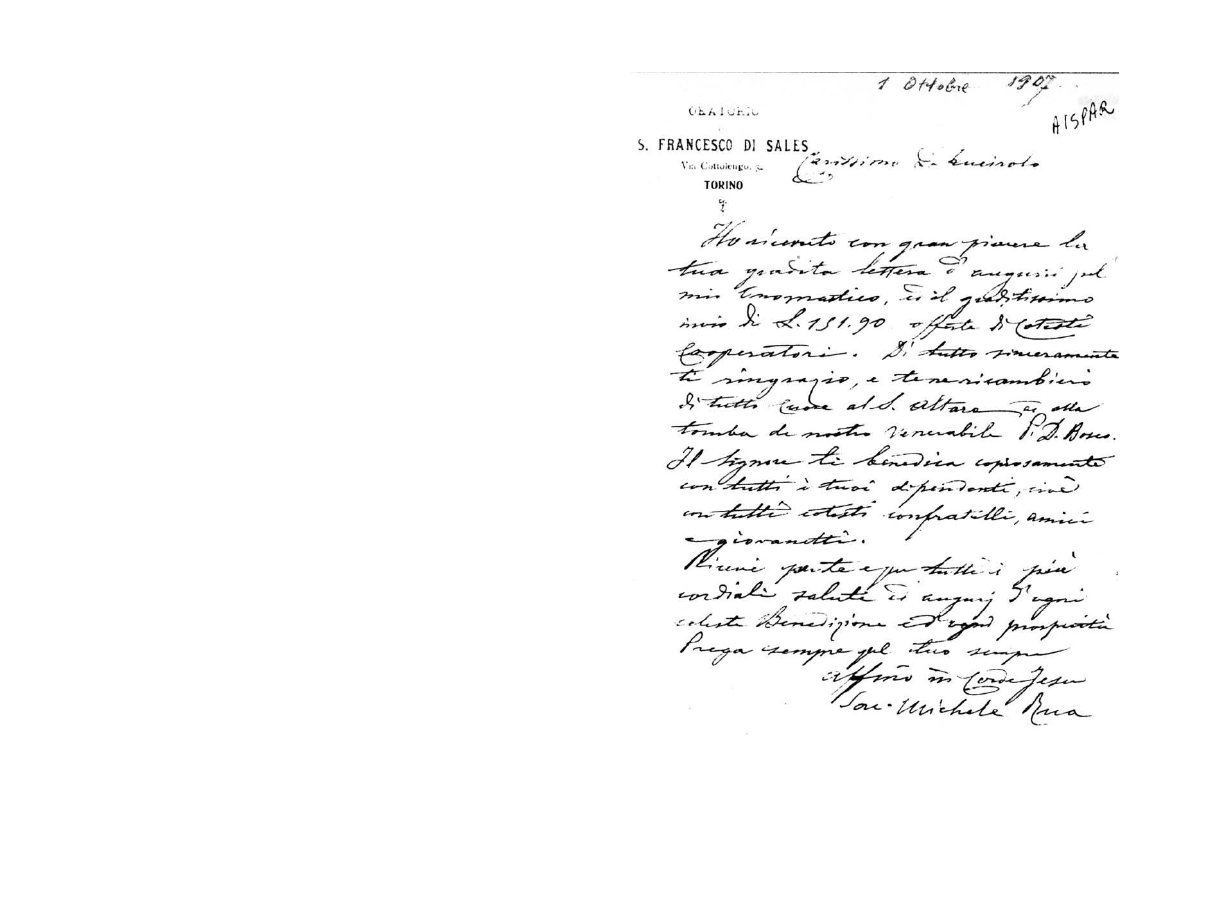 1 Ottobre 1907
AISPAR
ORATORIO
DI
S. FRANCESCO DI SALES
Via Cottolengo, 32
TORINO
Carissimo D.
Ho ricevuto con gran piacere la
tua gradita lettera d'augurii pel
mio Onomastico, ed il graditissimo
invio di L. 151.90 offerte di cotesti
Cooperatori. Di tutto sinceramente
ti ringrazio, e te ne ricambierò
di tutto cuore al S. Altare ed alla
tomba di nostro Venerabile P. D. Bosco.
Il Signore ti benedica copiosamente
con tutti i tuoi dipendenti, cioè
con tutti cotesti confratelli, amici
e giovanetti.
Ricevi per te e per tutti i più
cordiali saluti ed augurj d'ogni
celeste Benedizione ed ogni prosperità
Prega sempre pel tuo sempre
affmo in Corde Jesu
Sac. Michele Rua